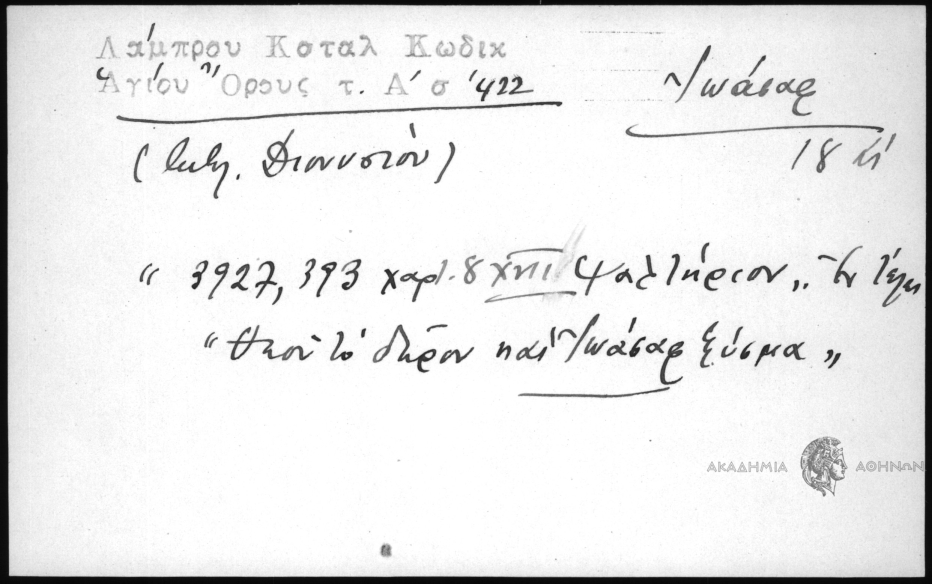 Λάμπρου Κοταλ Κωδικ
Ἁγίου Ὄρους τ. Α΄ σ΄ 422
Ἰωάσαφ
18 αἰ
( Διονυσίου)
“ 3927, 393 χαρτ. 8 XVIII Ψαλτήριον „ Ἐν τέλει
“ Θεοῦ τὸ δῶρον καὶ Ἰωάσαφ ξύσμα „
ΑΚΑΔΗΜΙΑ ΑΘΗΝΩΝ